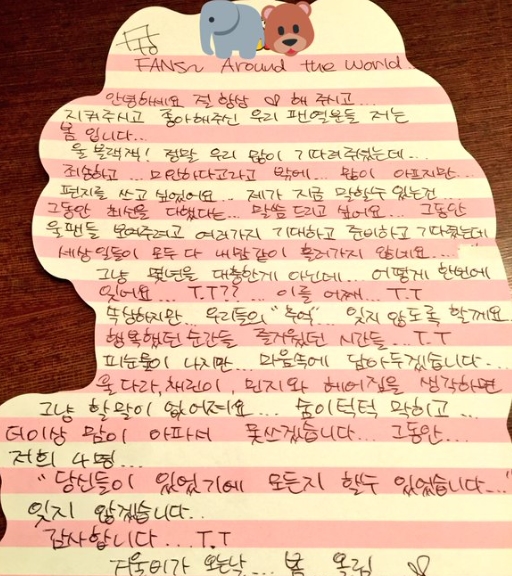 FANS~ Around the world..
안녕하세요 절 항상 ♡ 해 주시고...
지켜주시고 좋아해주신 우리 팬여러분들 저는
봄 입니다...
울 블랙잭! 정말 우리 많이 기다려주셨는데...
죄송하고... 미안하다고라고 밖에... 많이 아프지만...
편지를 쓰고 싶었어요... 제가 지금 말할수 있는건
그동안 최선을 다했다는... 말씀 드리고 싶어요... 그동안
울팬들 보여주려고 여러가지 기대하고 준비하고 기다렸는데
세상일들이 모두 다 내맘같이 흘러가지 않네요...
그냥 몇년을 대충한게 아닌데... 어떻게 한번에
잊어요... T.T?? ... 이를 어째... T.T
속상하지만... 우리들의 "추억"... 잊지 않도록 할께요
행복했던 순간들 즐거웠던 시간들... T.T
피눈물이 나지만... 마음속에 담아두겠습니다...
울 다라, 채린이, 민지와 헤어짐을 생각하면
그냥 할말이 없어져요... 숨이턱턱 막히고...
더이상 맘이 아파서 못쓰겠습니다... 그동안...
저희 4명...
"당신들이 있었기에 모든지 할수 있었습니다..."
잊지 않겠습니다..
감사합니다... T.T
겨울비가 오는날... 봄 올림 ♡